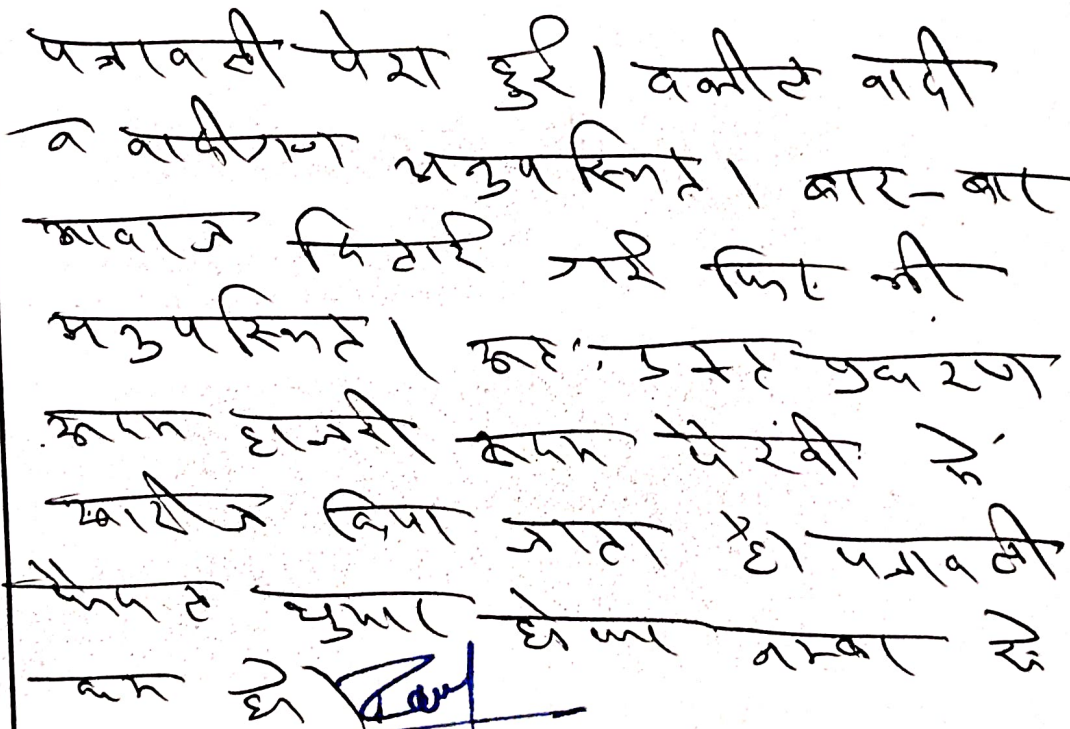 पत्रावली पेश हुई। वकील वादी
व वादीगण अनुपस्थित। बार-बार
आवाज दिलाई गई फिर भी
अनुपस्थित। अतः उक्त प्रकरण
अदम हाजरी अदम पैरवी में
खारीज किया जाता है। पत्रावली
फैसल शुमार होकर नम्बर से
कम हो